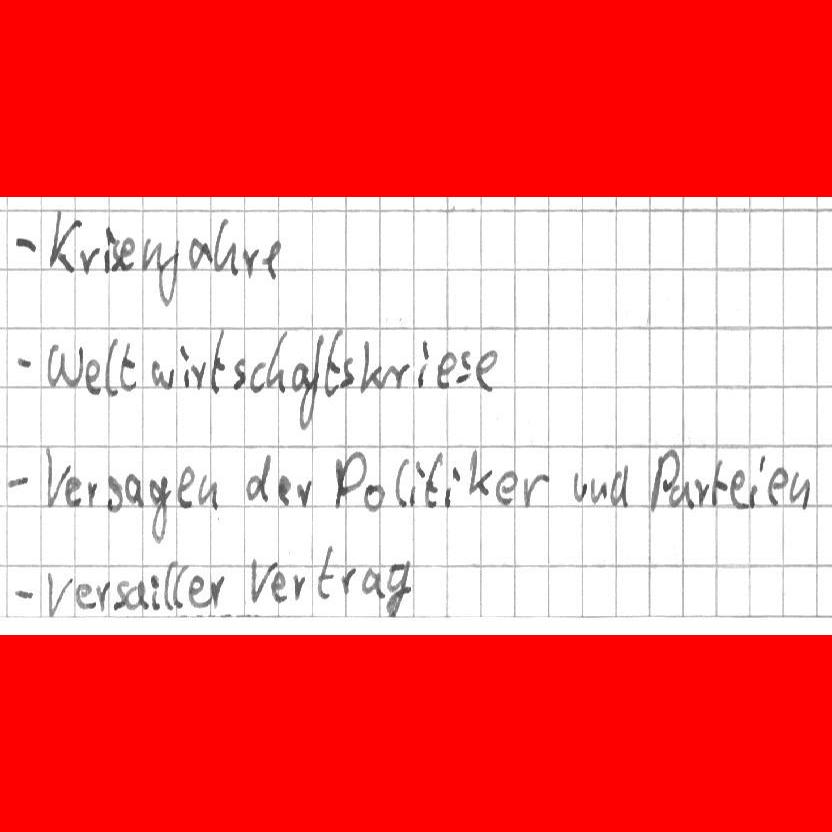 - Krisenjahre
- Weltwirtschaftskriese
- Versagen der Politiker und Parteien
- Versailler Vertrag